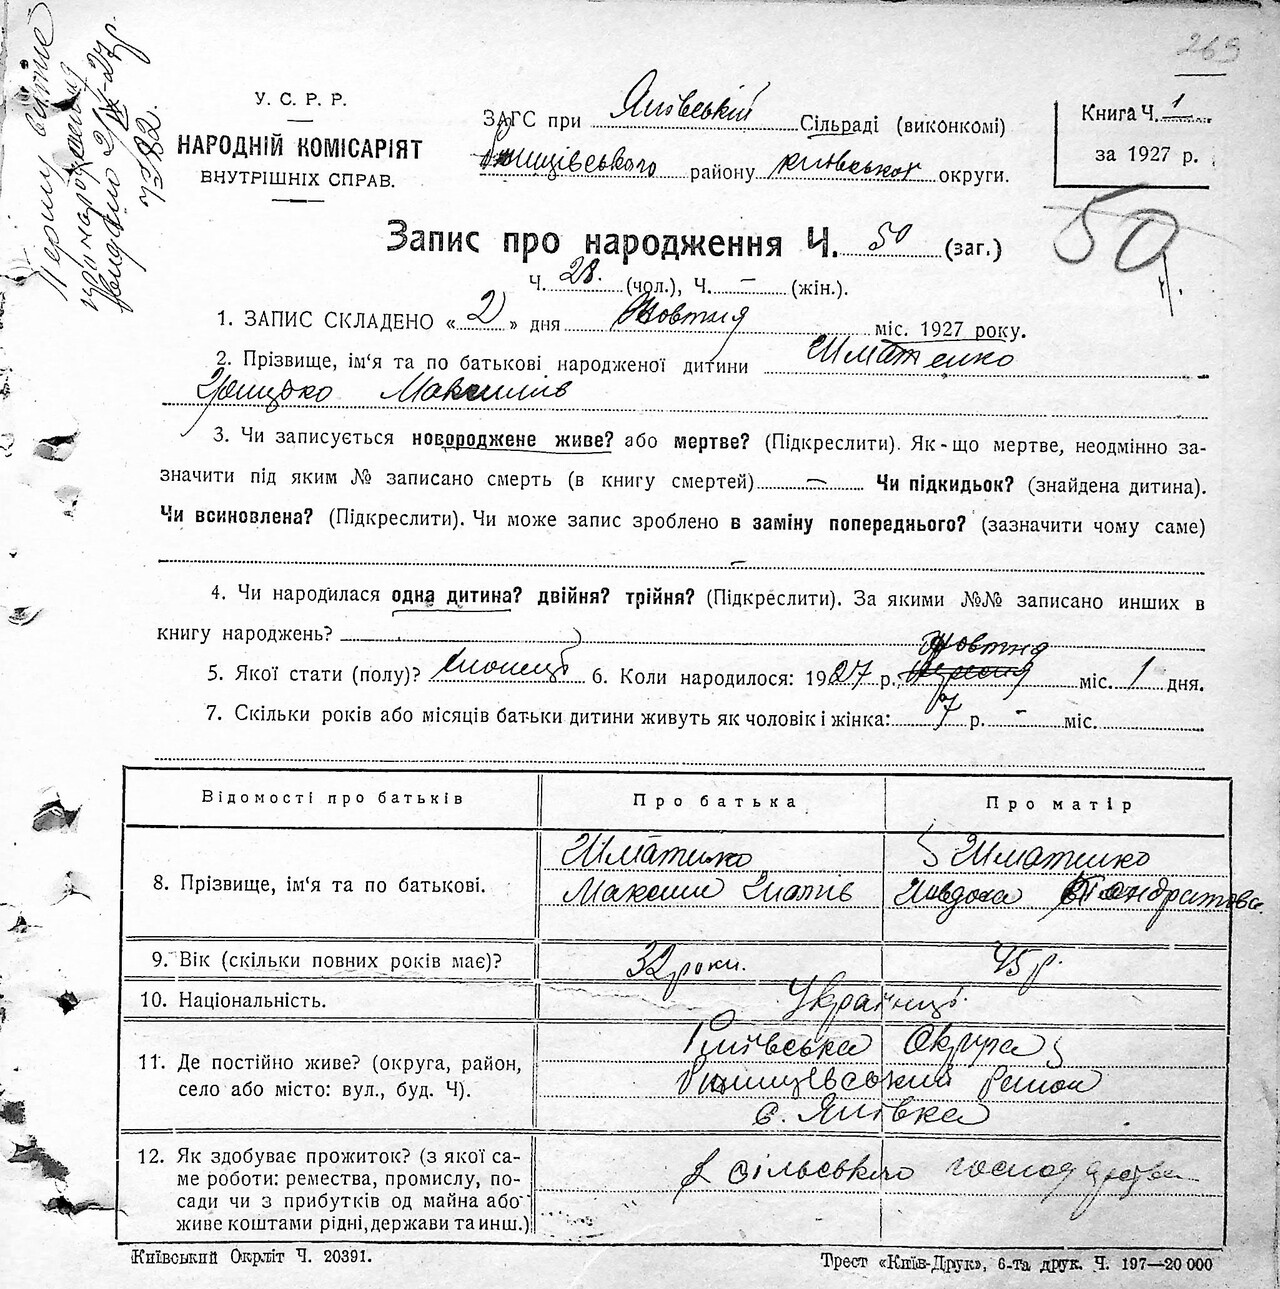 269
Перший витяг
про народження
видано 2/IX-27 р.
У. С. Р. Р.
НАРОДНІЙ КОМІСАРІЯТ
ВНУТРІШНІХ СПРАВ.
ЗАГС при Ялівській Сільраді (виконкомі)
району київської округи.
Книга Ч. 1
за 1927 р.
50
Запис про народження Ч. 50 (заг.)
Ч. 28. (чол.), Ч. - (жін.).
1. ЗАПИС СКЛАДЕНО «2» дня Жовтня міс. 1927 року.
2. Прізвище, ім'я та по батькові народженої дитини Шматченко
Грицько Максимів
3. Чи записується новороджене живе? або мертве? (Підкреслити). Як-що мертве, неодмінно за-
значити під яким № записано смерть (в книгу смертей) - Чи підкидьок? (знайдена дитина).
Чи всиновлена? (Підкреслити). Чи може запис зроблено в заміну попереднього? (зазначити чому саме)
-
4. Чи народилася одна дитина? двійня? трійня? (Підкреслити). За якими №№ записано инших в
книгу народжень?
Жовтня
5. Якої стати (полу)? хлопець 6. Коли народилося: 1927 р. вересня міс. 1 дня.
7. Скільки років або місяців батьки дитини живуть як чоловік і жінка: 7 р. - міс.
Відомості про батьків Про батька Про матір
8. Прізвище, ім'я та по батькові.
Шматченко Шматченко
Максим Явдоха Кондратова
9. Вік (скільки повних років має)? 32 роки. 45 р.
10. Національність. Українці
11. Де постійно живе? (округа, район,
село або місто: вул., буд. Ч).
Київська Округа
район
с. Ялівка
12. Як здобуває прожиток? (з якої са-
ме роботи: ремества, промислу, по-
сади чи з прибутків од майна або
живе коштами рідні, держави та инш.)
з сільського господарства
Київський Окрліт Ч. 20391.
Трест «Київ-Друк», 6-та друк. Ч. 197—20 000